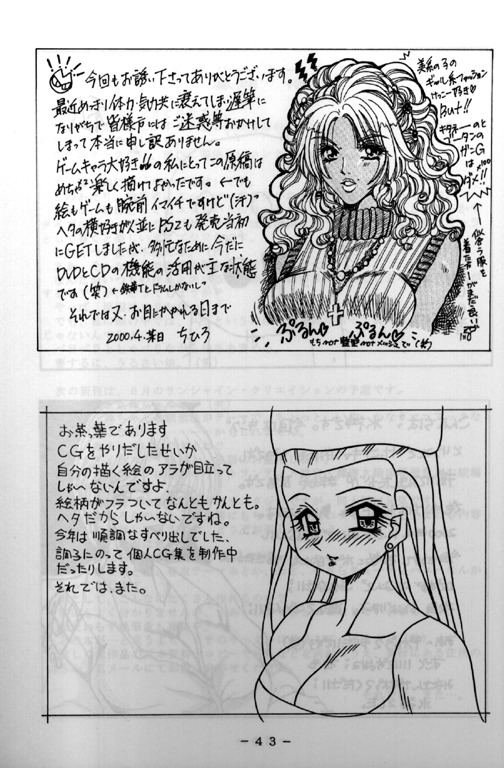 今回もお誘い下さってありがとうございます。
最近めっきり体力・気力共に衰えてしまい遅筆に
なりがちで皆様方にはご迷惑等おかけして
しまって本当に申し訳ありません。
ゲームキャラ大好きの私にとってこの原稿は
めちゃ楽しく描けてよかったです。←でも
絵もゲームも腕前イマイチですけど(汗)
ヘタの横好きが並にPS2も発売当初
にGETしましたが、多忙なために今だに
DVDとCDの機能の活用が主な状態
です(笑)
それでは又、お目にかかれる日まで
2000.4. ちひろ
美系の子の
ギャル系ファッション
けっこー好き
But!!
のと
は
ダメ!!
ぷるん♡
ぷるん♡
お茶っ葉であります
CGをやりだしたせいか
自分の描く絵のアラが目立って
しゃーないんですよ
絵柄がフラついてなんともかんとも。
ヘタだからしゃーないですね。
今年は順調なすべり出しでした、
調子にのって個人CG集を制作中
だったりします。
それでは、また。
-43-